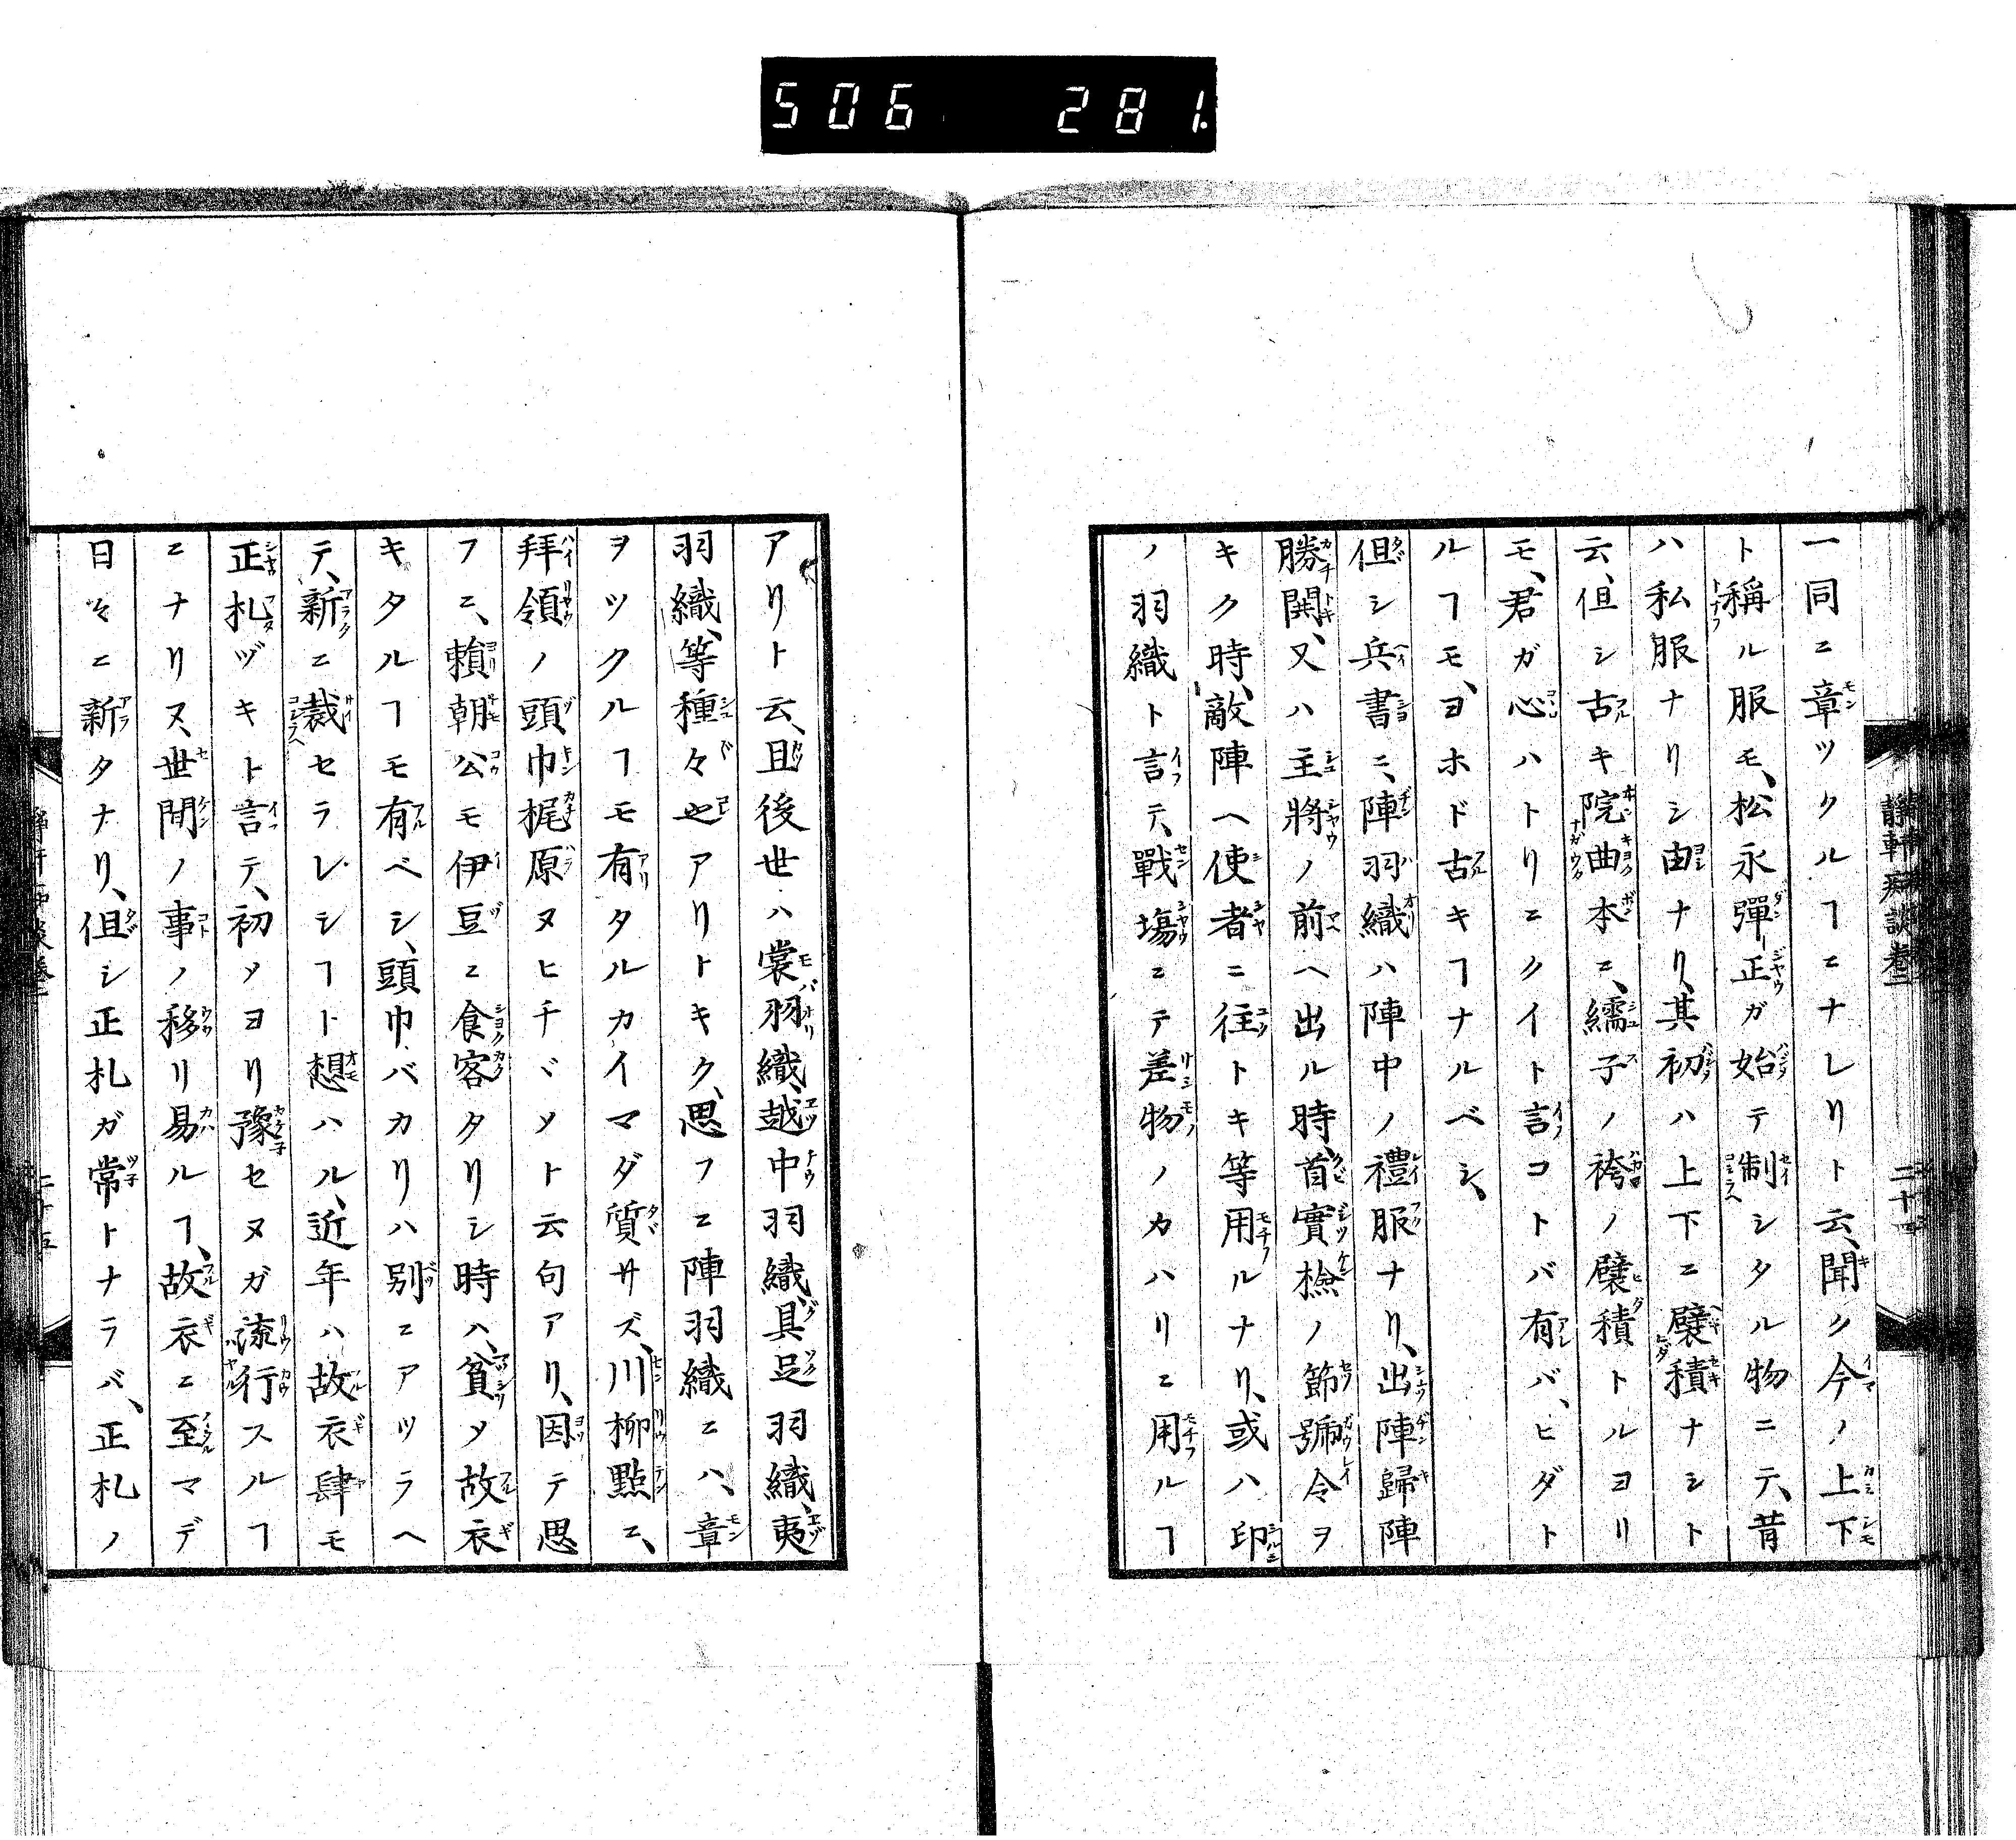 506 281
一同ニ章ツクルヿニナレリト云、聞ク今ノ上下
ト稱ル服モ、松永彈正ガ始テ制シタル物ニテ、昔
ハ私服ナリシ由ナリ、其初ハ上下ニ襞積ナシト
云、但シ古キ院曲本ニ、繻子ノ袴ノ襞積トルヨリ
モ、君ガ心ハトリニクイト言コトバ有バ、ヒダト
ルヿモ、ヨホド古キヿナルベシ、
但シ兵書ニ、陣羽織ハ陣中ノ禮服ナリ、出陣歸陣
勝閧、又ハ主將ノ前ヘ出ル時、首實檢ノ節號令ヲ
キク時、敵陣ヘ使者ニ往トキ等用ルナリ、或ハ印
ノ羽織ト言テ、戰塲ニテ差物ノカハリニ用ルヿ
靜軒痴談卷二
二十四
アリト云、且後世ハ裳羽織、越中羽織、具足羽織、夷
羽織、等種々也アリトキク、思フニ陣羽織ニハ、章
ヲツクルヿモ有タルカイマダ質サズ、川柳點ニ、
拜領ノ頭巾梶原ヌヒチヾメト云句アリ、因テ思
フニ、賴朝公モ伊豆ニ食客タリシ時ハ、貧メ故衣
キタルヿモ有ベシ、頭巾バカリハ別ニアツラヘ
テ、新ニ裁セラレシヿト想ハル、近年ハ故衣肆モ
正札ヅキト言テ、初メヨリ豫セヌガ流行スルヿ
ニナリヌ、世間ノ事ノ移リ易ルヿ、故衣ニ至マデ
日々ニ新タナリ、但シ正札ガ常トナラバ、正札ノ